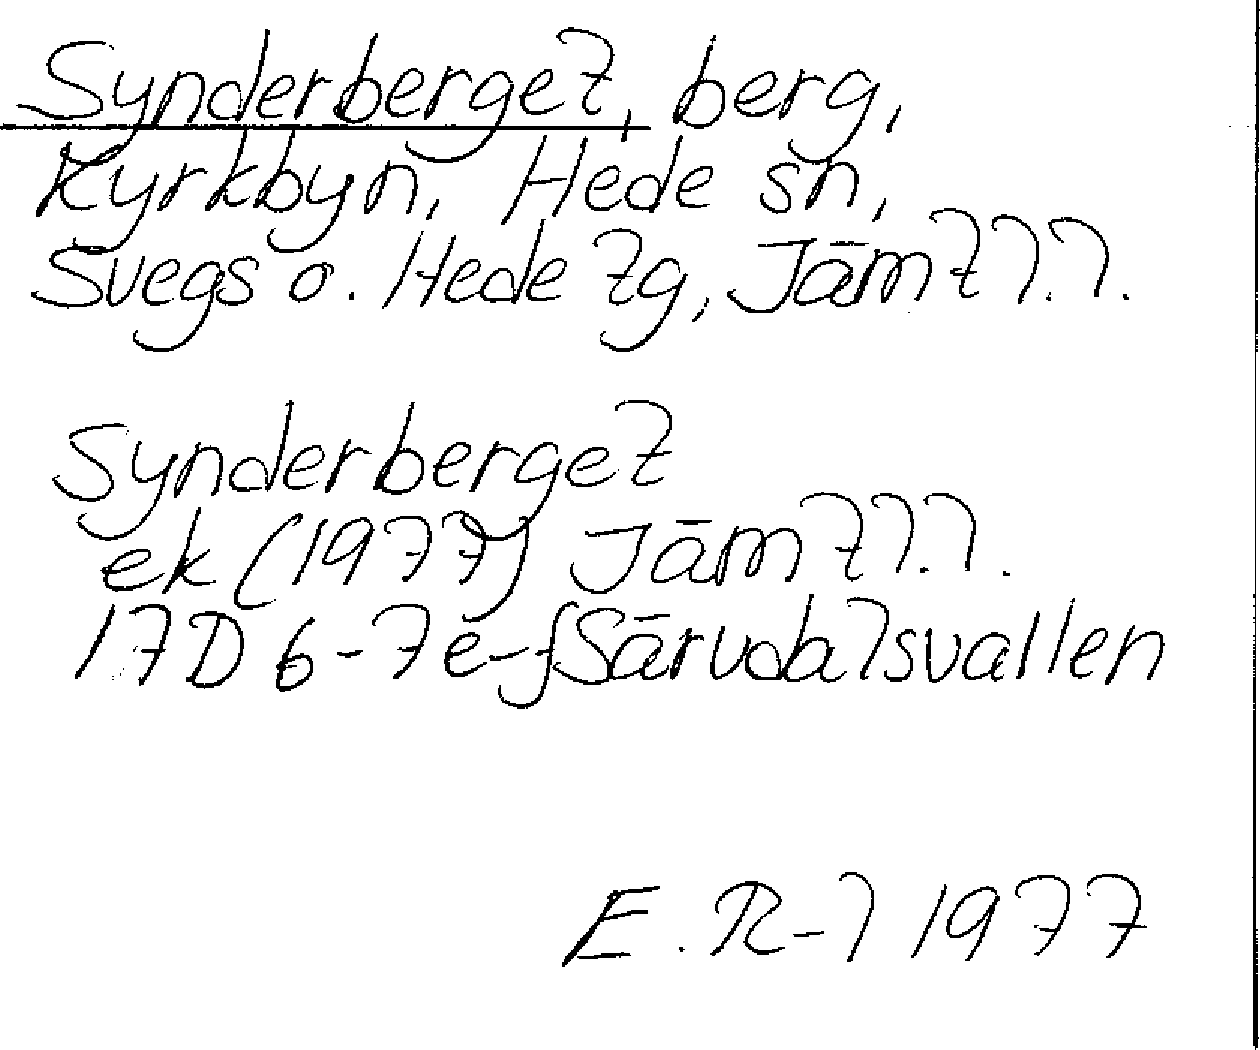 Synderberget, berg,
Kyrkbyn, Hede sn,
Svegs o. Hede tg, Jämtl.l.
Synderberget
ek (1977) Jämtl.l.
17D 6-7e-f Särvdalsvallen
E. R-l 1977